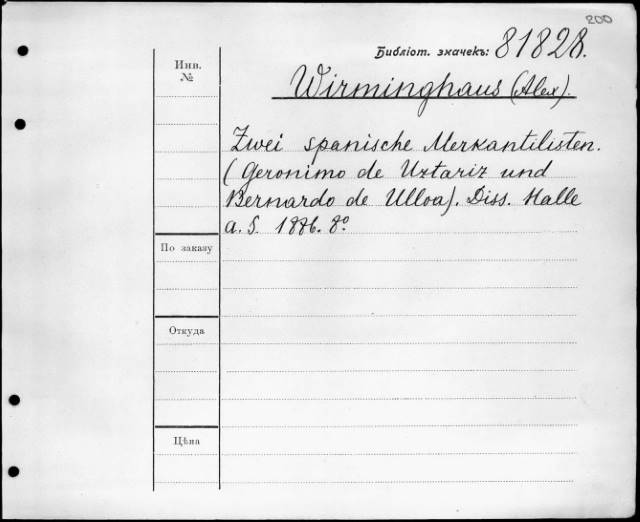 200
Библіот. значекъ: 81828.
Инв. №
Wirminghaus (Alex).
Zwei spanische Merkantilisten.
(Geronimo de Uztariz und
Bernardo de Ulloa). Diss. Halle
a. S. 1886. 8º
По заказу
Откуда
Цѣна